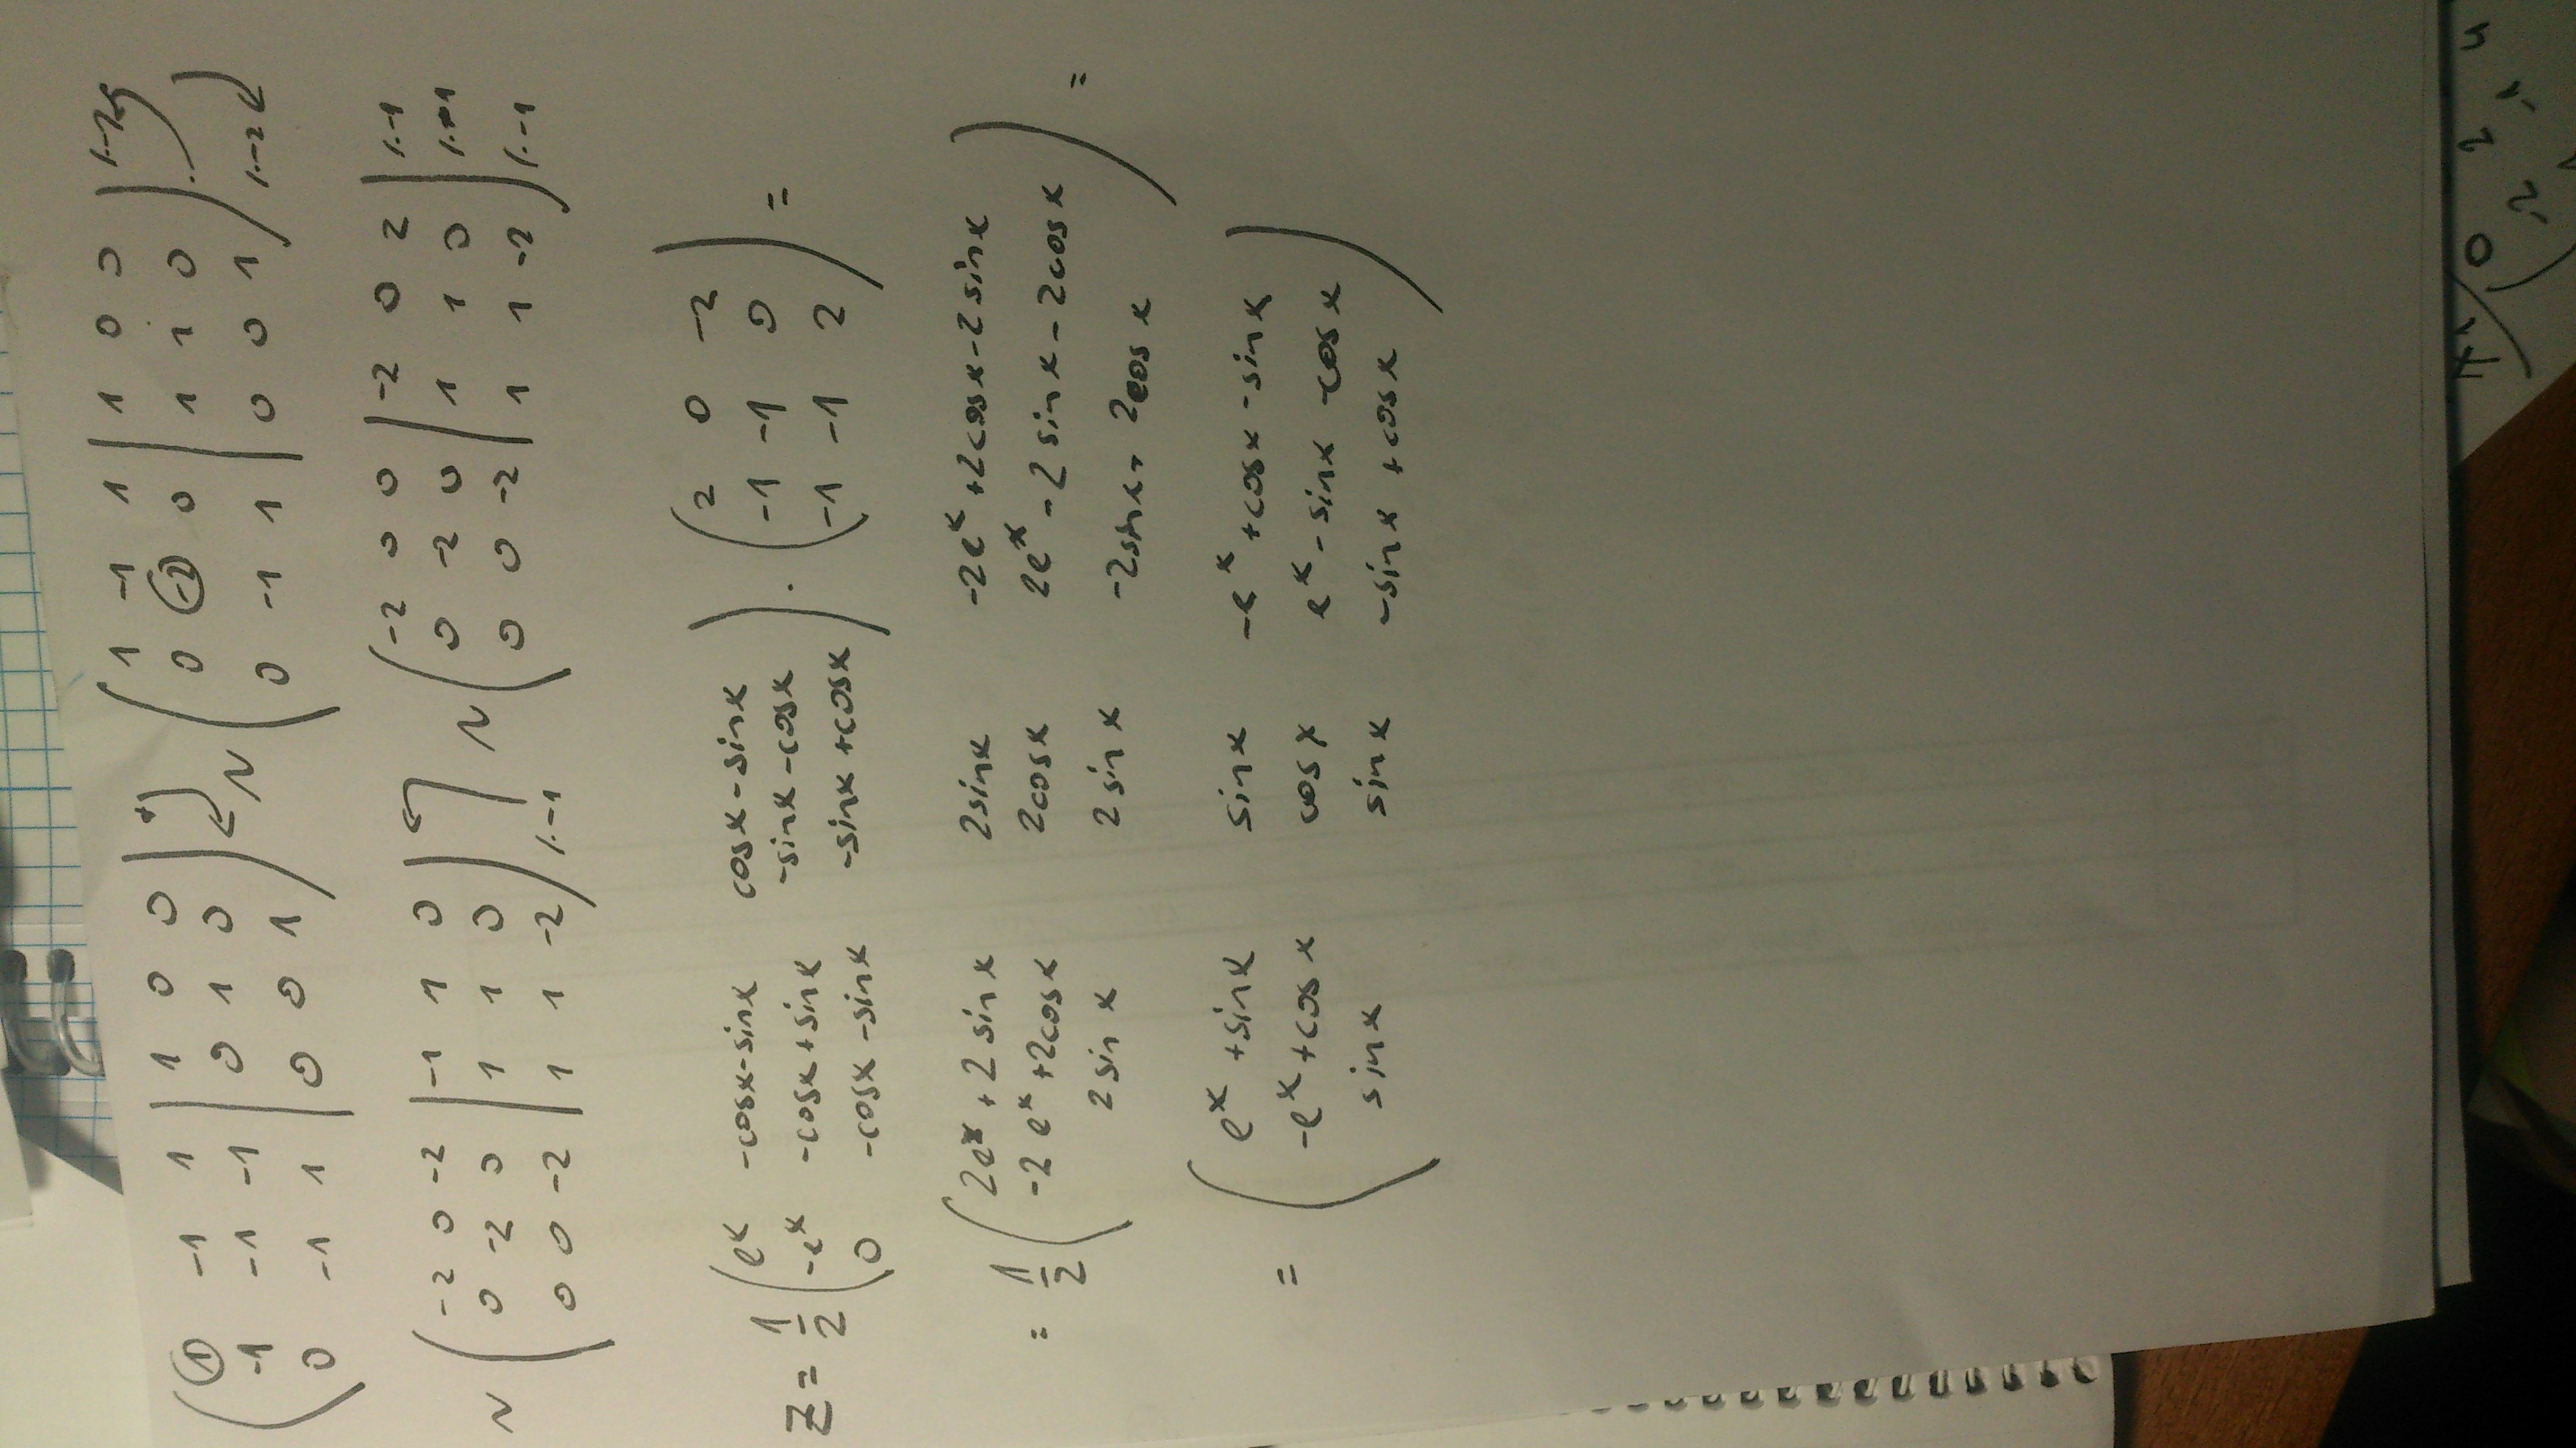 ( 1 -1 1 | 1 0 0 ) + ~ ( 1 -1 1 | 1 0 0 ) /·-2
( -1 -1 -1 | 0 1 0 ) ( 0 -2 0 | 1 1 0 ) ·
( 0 -1 1 | 0 0 1 ) ( 0 -1 1 | 0 0 1 ) /·-2
~ ( -2 0 -2 | -1 1 0 ) ~ ( -2 0 0 | -2 0 2 ) /·-1
( 0 -2 0 | 1 1 0 ) ( 0 -2 0 | 1 1 0 ) /·-1
( 0 0 -2 | 1 1 -2 ) /·-1 ( 0 0 -2 | 1 1 -2 ) /·-1
Z = 1/2 ( e^x -cosx-sinx cosx-sinx ) · ( 2 0 -2 ) =
( -e^x -cosx+sinx -sinx-cosx ) ( -1 -1 0 )
( 0 -cosx-sinx -sinx+cosx ) ( -1 -1 2 )
= 1/2 ( 2e^x+2sinx 2sinx -2e^x+2cosx-2sinx ) =
( -2e^x+2cosx 2cosx 2e^x-2sinx-2cosx )
( 2sinx 2sinx -2sinx+2cosx )
= ( e^x+sinx sinx -e^x+cosx-sinx )
( -e^x+cosx cosx e^x-sinx-cosx )
( sinx sinx -sinx+cosx )
0 2 4
-2 -1